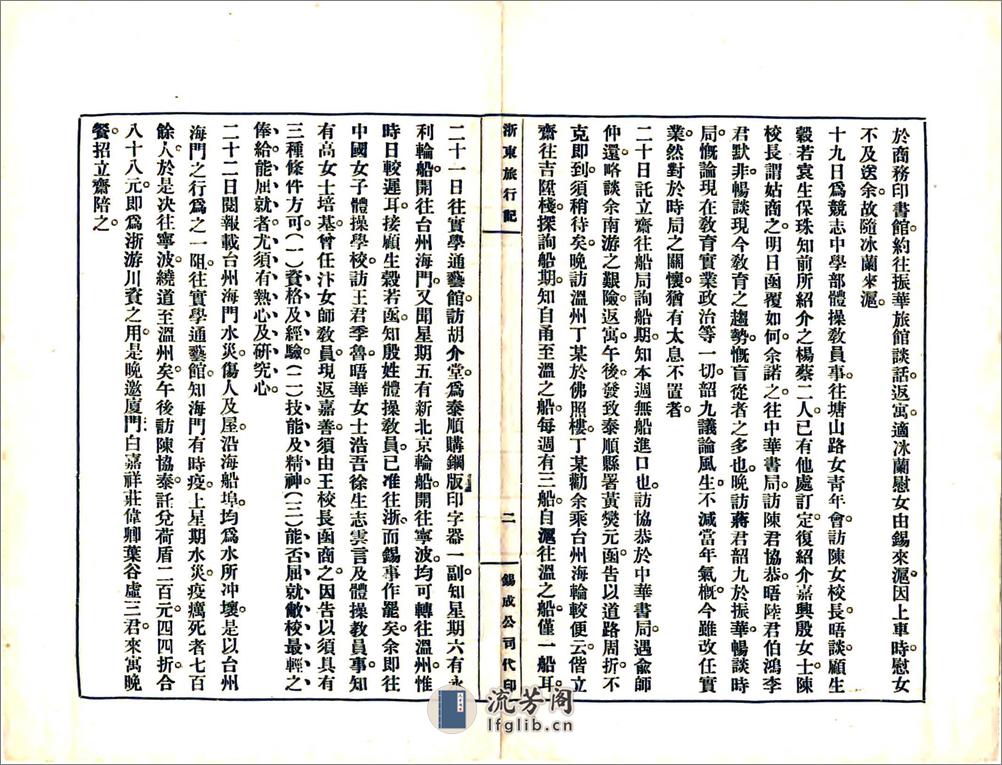 於商務印書館約往振華旅館談話返寓適冰蘭慰女由錫來滬因上車時慰女
不及送余故隨冰蘭來滬。
十九日爲競志中學部體操敎員事往塘山路女靑年會訪陳女校長晤談顧生
穀若袁生保珠知前所紹介之楊蔡二人已有他處訂定復紹介嘉興殷女士陳
校長謂姑商之明日函覆如何余諾之往中華書局訪陳君協恭晤陸君伯鴻李
君默非暢談現今敎育之趨勢慨盲從者之多也晚訪蔣君韶九於振華暢談時
局慨論現在敎育實業政治等一切韶九議論風生不減當年氣概今雖改任實
業然對於時局之關懷猶有太息不置者
二十日託立齋往船局詢船期知本週無船進口也訪協恭於中華書局遇兪師
仲還略談余南游之艱險返寓午後發致泰順縣署黃爕元函告以道路周折不
克卽到須稍待矣晚訪溫州丁某於佛照樓丁某勸余乘台州海輪較便云偕立
齋往吉陞棧探詢船期知自甬至溫之船每週有三船自滬往溫之船僅一船耳
浙東旅行記
二
錫成公司代印
二十一日往實學通藝館訪胡介堂爲泰順購鋼版印字器一副知星期六有永
利輪船開往台州海門又聞星期五有新北京輪船開往寧波均可轉往溫州惟
時日較遲耳接顧生穀若函知殷姓體操敎員已准往浙而錫事作罷矣余卽往
中國女子體操學校訪王君季魯晤華女士浩吾徐生志雲言及體操敎員事知
有高女士培基曾任汴女師敎員現返嘉善須由王校長函商之因告以須具有
三種條件方可(一)資格及經驗(二)技能及精神(三)能否屈就敝校最輕之
俸給能屈就者尤須有熱心及研究心
二十二日閱報載台州海門水災傷人及屋沿海船埠均爲水所冲壞是以台州
海門之行爲之一阻往實學通藝館知海門有時疫上星期水災疫癘死者七百
餘人於是決往寧波繞道至溫州矣午後訪陳協泰託兌荷盾二百元四四折合
八十八元卽爲浙游川資之用是晚邀廈門白嘉祥莊偉卿葉谷虛三君來寓晚
餐招立齋陪之
流芳閣
lfglib.cn